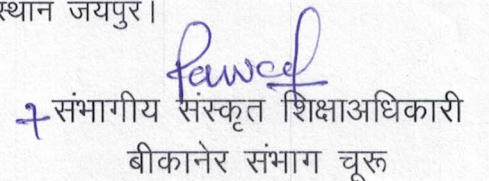 स्थान जयपुर।
संभागीय संस्कृत शिक्षाअधिकारी
बीकानेर संभाग चूरू